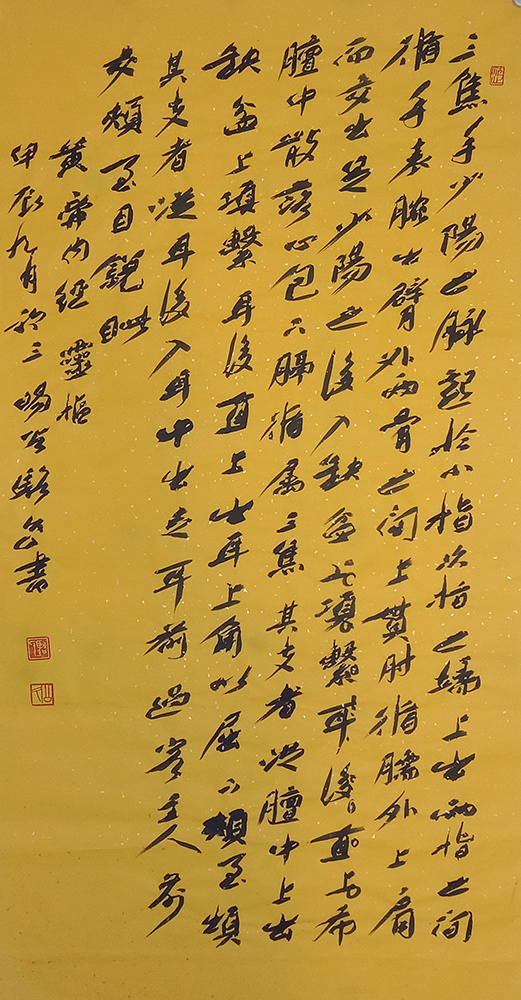 三焦手少陽之脉起於小指次指之端上出兩指之間
循手表腕出臂外兩骨之間上貫肘循臑外上肩
而交出足少陽之後入缺盆上項繫耳後直上布
膻中散落心包下膈循屬三焦其支者從膻中上出
缺盆上項繫耳後直上出耳上角以屈下頰至䪼
其支者從耳後入耳中出走耳前過客主人前
交頰至目銳眥
黃帝內經靈樞
甲辰九月於三駱公書